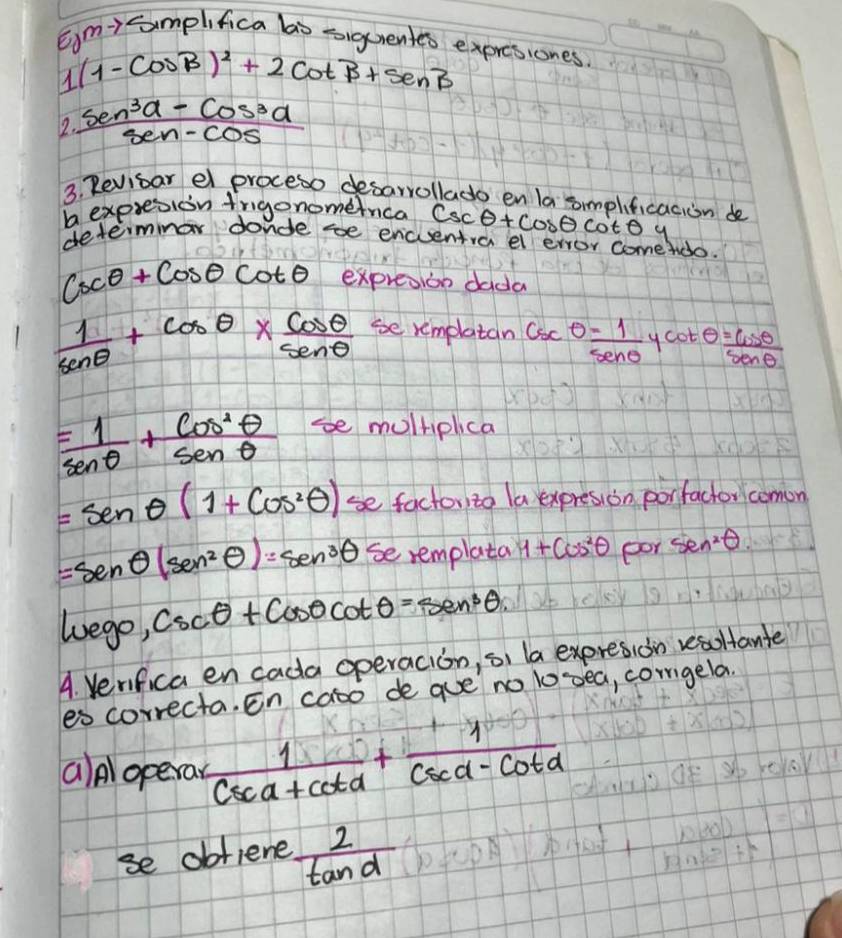 Ejm→ Simplifica las siguientes expresiones.
1(1-CosB)² + 2CotB + SenB
2. sen³a - Cos³a / sen-cos
3. Revisar el proceso desarrollado en la simplificación de
la expresión trigonométrica Cscθ+Cosθ Cotθ y
determinar donde se encuentra el error cometido.
Cscθ + Cosθ Cotθ expresión dada
1/senθ + cosθ x Cosθ/senθ se remplatan Csc θ=1/senθ y cotθ=Cosθ/senθ
= 1/senθ + Cos²θ/senθ se multiplica
= senθ (1+Cos²θ) se factoriza la expresión por factor comon
=senθ(sen²θ)=sen³θ Se remplata 1+Cos²θ por sen²θ.
luego, Cscθ + Cosθ Cotθ = sen³θ.
4. Verifica en cada operación, si la expresión resultante
es correcta. En caso de que no lo sea, corrigela.
a) Al operar 1/Csca+cotd + 1/Cscd-Cotd
se obtiene 2/tand